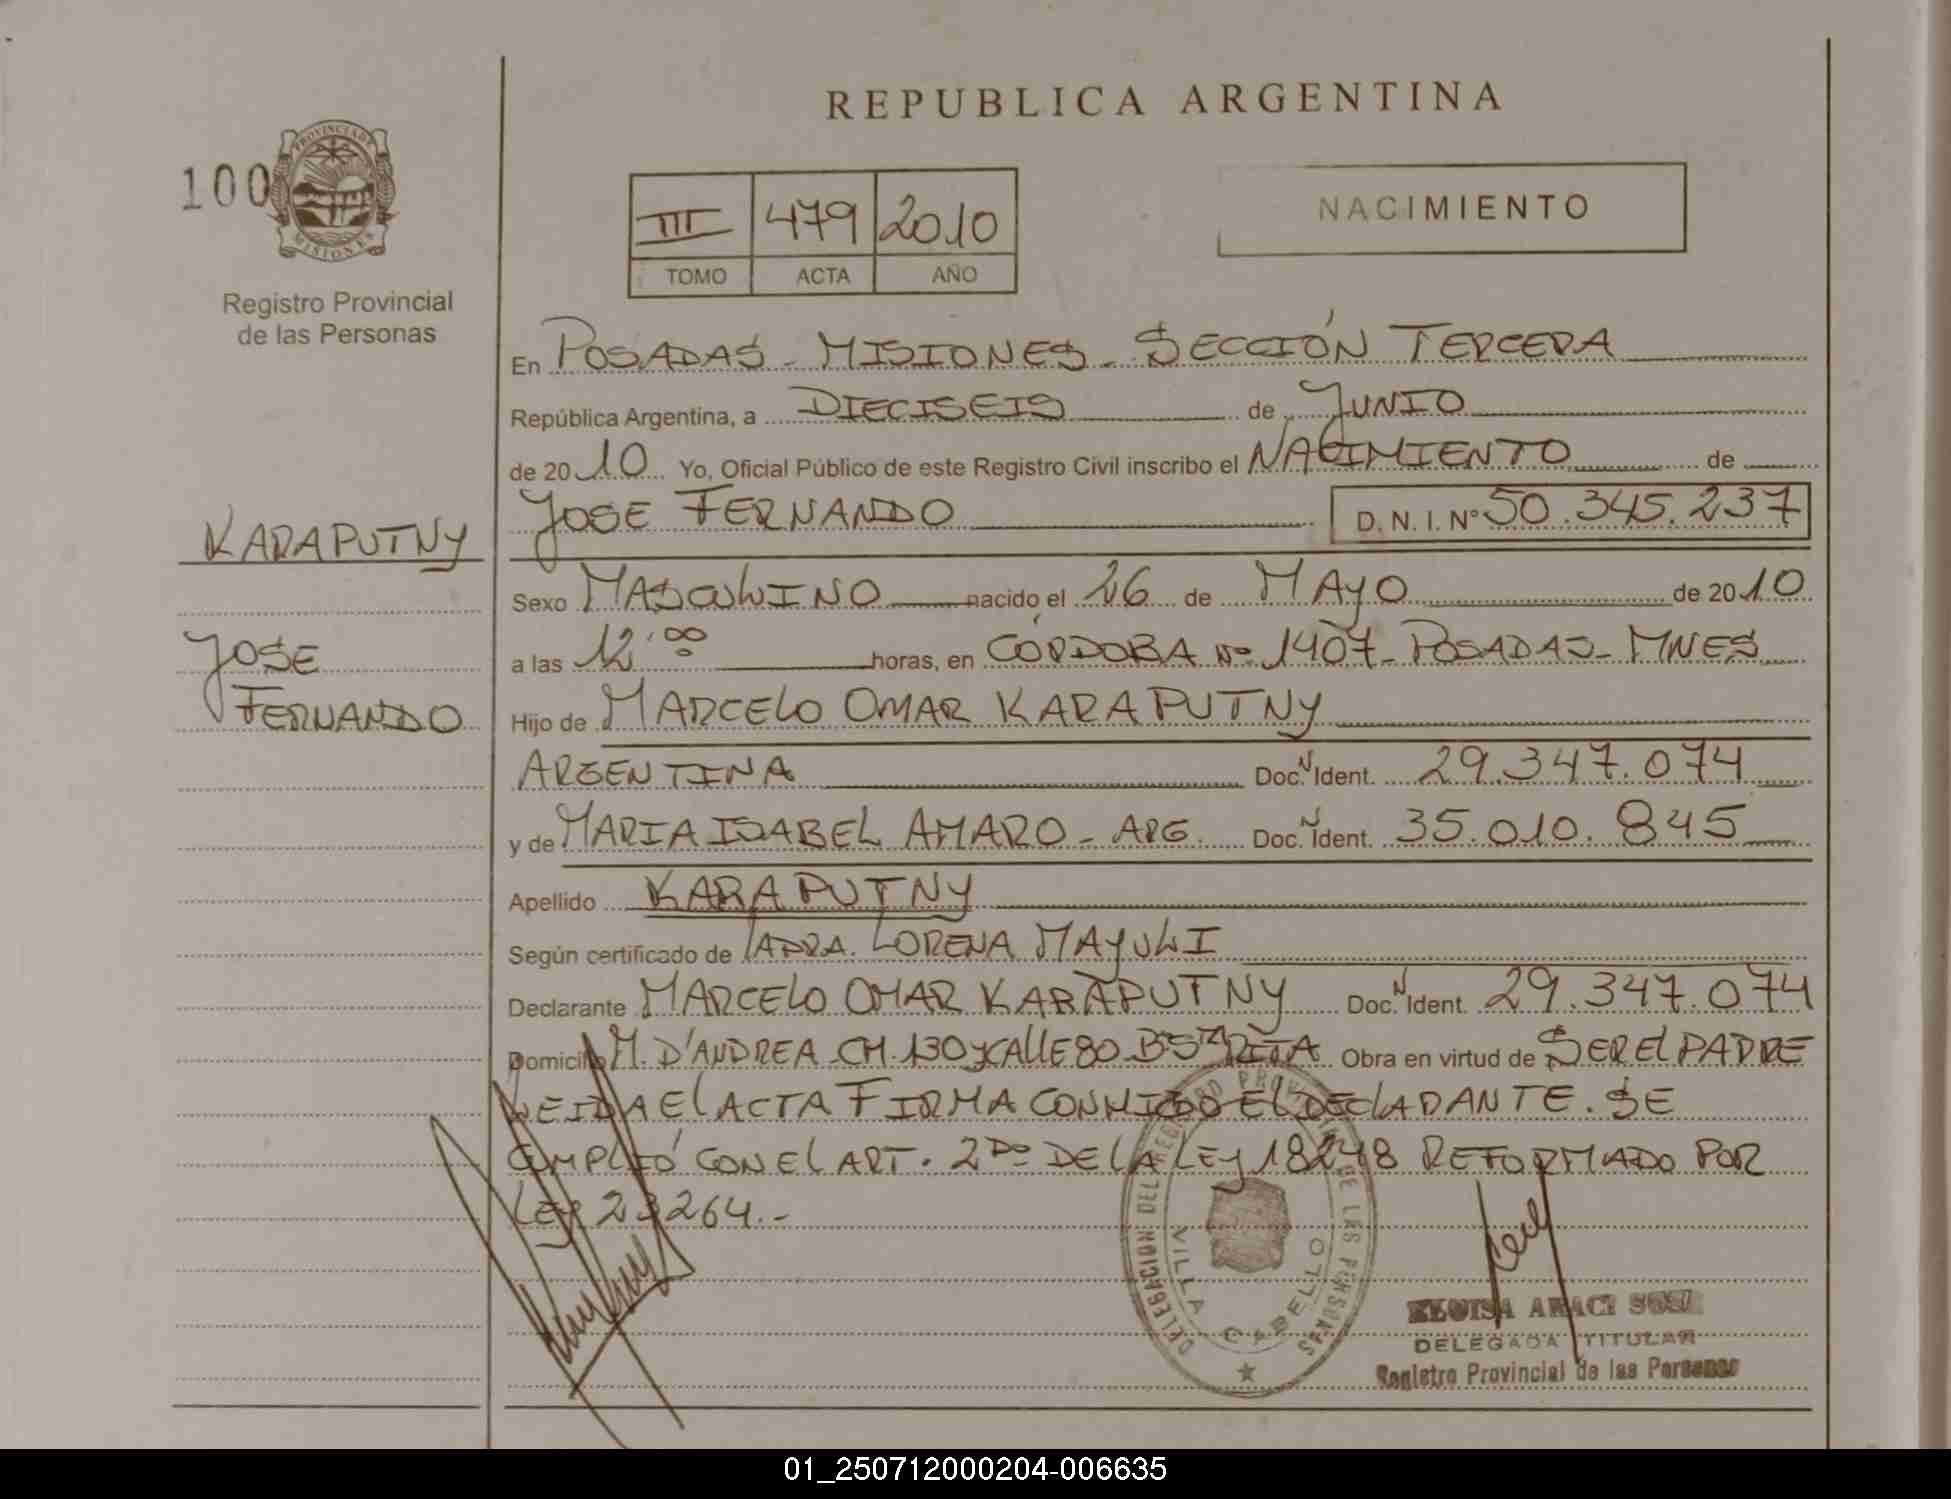 REPUBLICA ARGENTINA
100
PROVINCIA DE
MISIONES
Registro Provincial
de las Personas
III 479 2010
TOMO ACTA AÑO
NACIMIENTO
En POSADAS - MISIONES - SECCIÓN TERCERA
República Argentina, a DIECISEIS de JUNIO
de 2010 Yo, Oficial Público de este Registro Civil inscribo el NACIMIENTO de
JOSE FERNANDO D. N. I. Nº 50.345.237
KARAPUTNY
JOSE
FERNANDO
Sexo MASCULINO nacido el 26 de MAYO de 2010
a las 12:00 horas, en CÓRDOBA Nº 1407 - POSADAS - MNES
Hijo de MARCELO OMAR KARAPUTNY
ARGENTINA Doc. N Ident. 29.347.074
y de MARIA ISABEL AMARO - ARG. Doc. N Ident. 35.010.845
Apellido KARAPUTNY
Según certificado de LORENA MAYULI
Declarante MARCELO OMAR KARAPUTNY Doc. N Ident. 29.347.074
Domicilio M. D'ANDREA CH. 130 y CALLE 80 Bº STA RITA Obra en virtud de SER EL PADRE
LEIDA EL ACTA FIRMA CONMIGO EL DECLARANTE. SE
CUMPLIÓ CON EL ART. 2DO DE LA LEY 18248 REFORMADO POR
LEY 23264.-
DELEGACION DEL REGISTRO PROVINCIAL DE LAS PERSONAS
VILLA CABELLO
ELOISA ARACI SOSA
DELEGADA TITULAR
Registro Provincial de las Personas
01_250712000204-006635